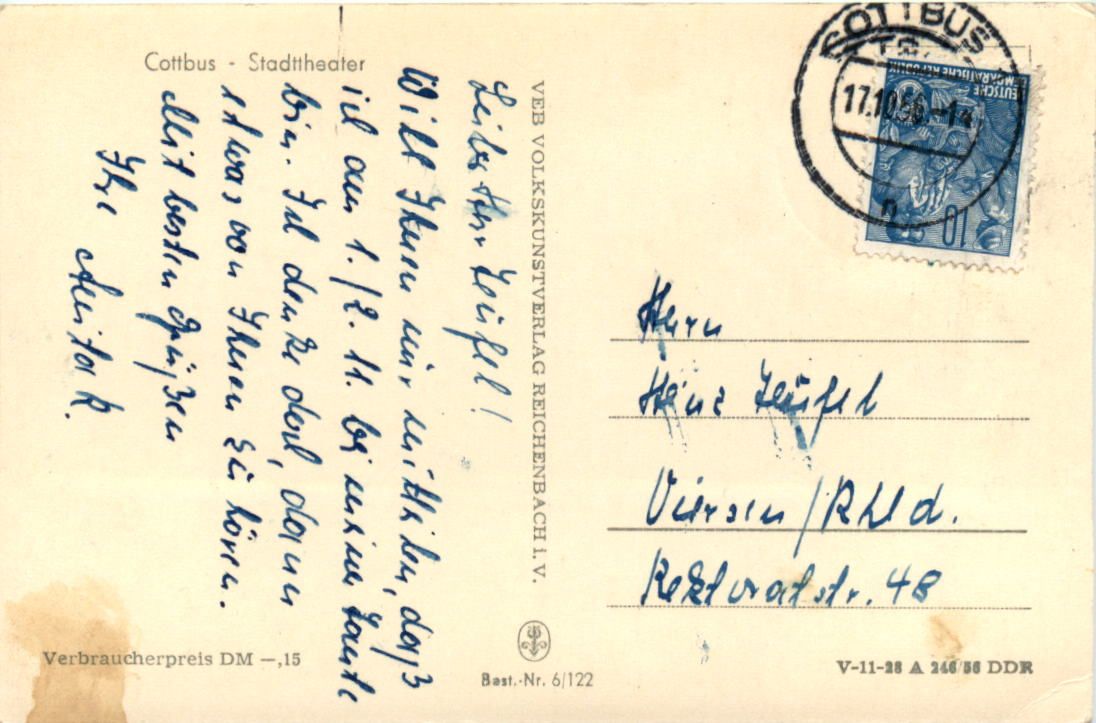 Cottbus - Stadttheater
Lieber Herr Teufel!
Will Ihnen nur mitteilen, daß
ich am 1./2. 11. bei meiner Tante
bin. Ich denke doch, dann
etwas von Ihnen zu hören.
Mit besten Grüßen
Ihr
VEB VOLKSKUNSTVERLAG REICHENBACH i. V.
COTTBUS
17.10.56.-1
n
DEUTSCHE
DEMOKRATISCHE REPUBLIK
10
Herrn
Heinz Teufel
Viersen/Rhld.
str. 48
Verbraucherpreis DM —,15
Best.-Nr. 6/122
V-11-28 A 246 56 DDR